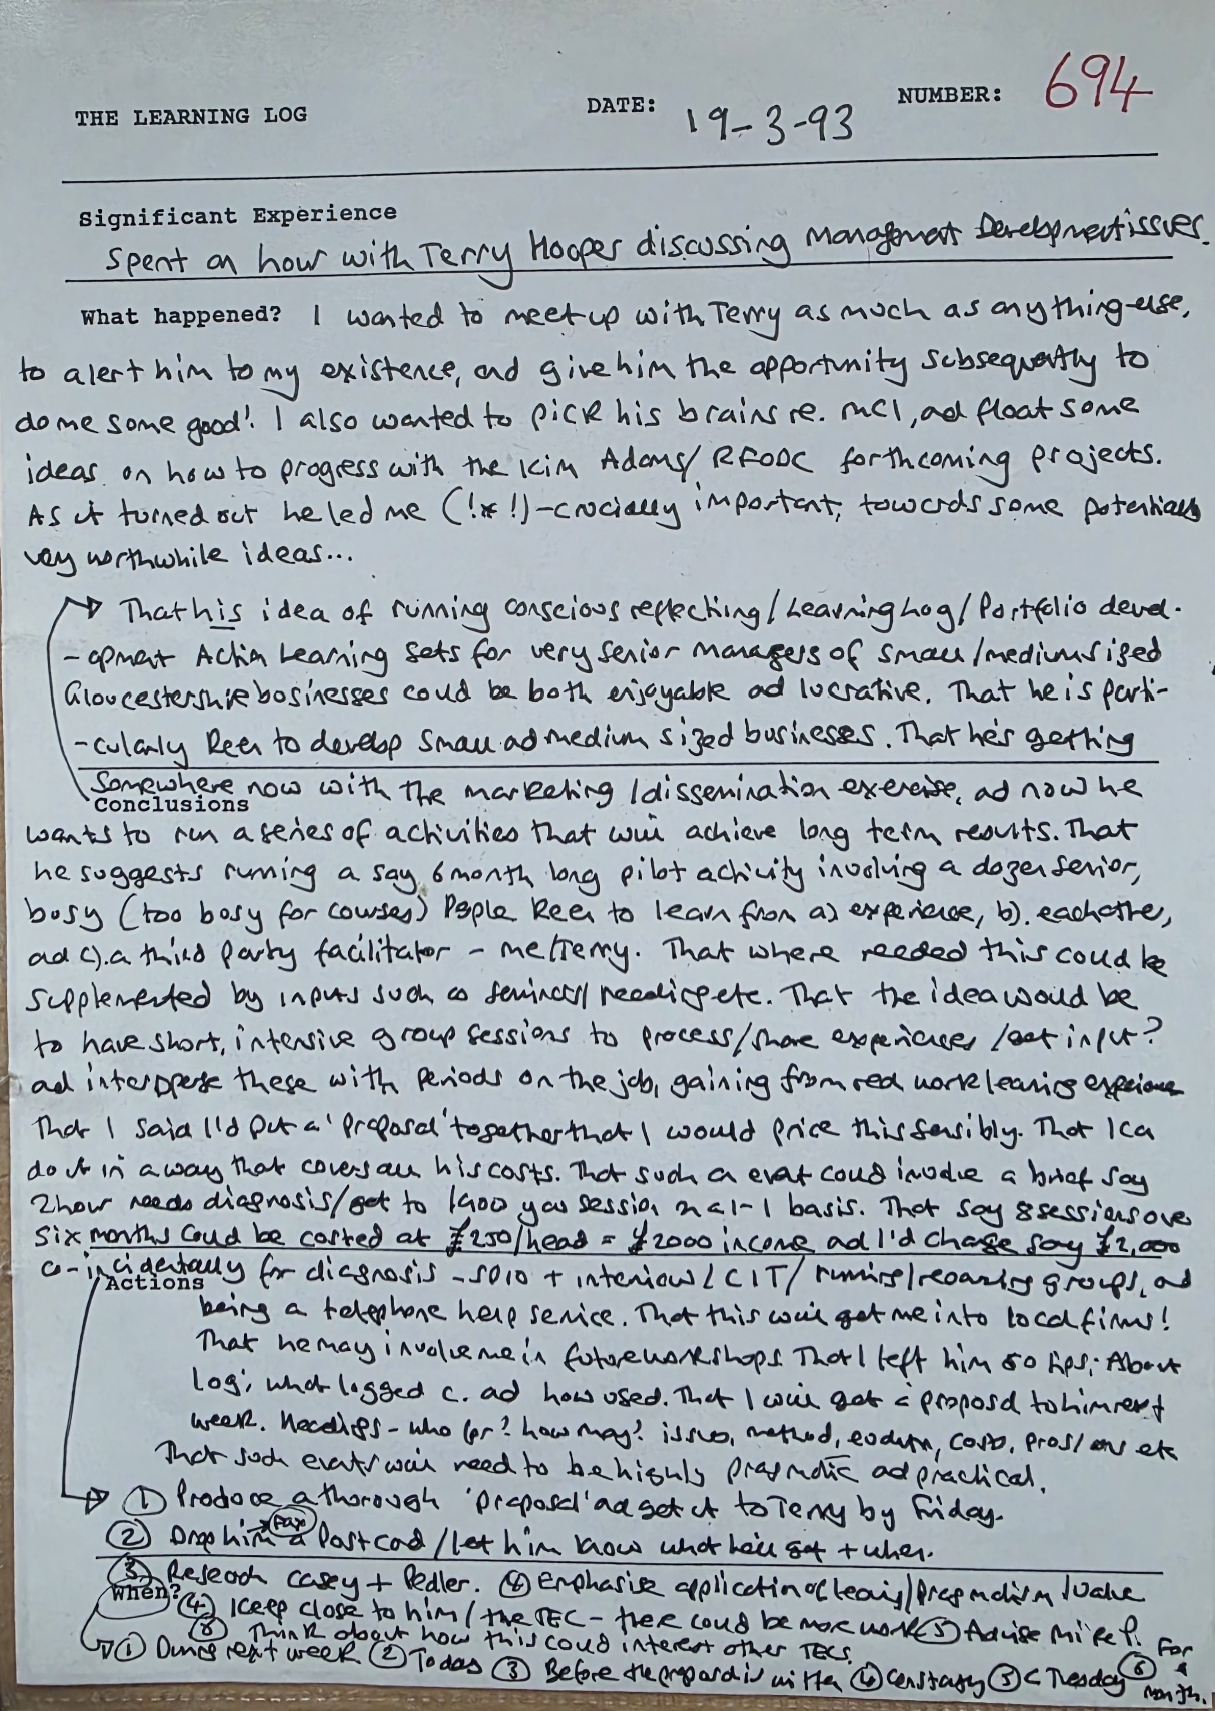 THE LEARNING LOG DATE: 19-3-93 NUMBER: 694
Significant Experience
Spent an hour with Terry Hooper discussing Management Development issues.
What happened? I wanted to meet up with Terry as much as anything else,
to alert him to my existence, and give him the opportunity subsequently to
do me some good! I also wanted to pick his brains re. MCI, and float some
ideas on how to progress with the Kim Adams/ RFODC forthcoming projects.
As it turned out he led me (!*!) - crucially important, towards some potentially
very worthwhile ideas...
That his idea of running conscious reflecting/Learning Log/Portfolio devel-
-opment Action Learning Sets for very senior managers of small/medium sized
Gloucestershire businesses could be both enjoyable and lucrative. That he is parti-
-cularly keen to develop small and medium sized businesses. That he's getting
somewhere now with the marketing/dissemination exercise, and now he
Conclusions
wants to run a series of activities that will achieve long term results. That
he suggests running a say 6 month long pilot activity involving a dozen senior,
busy (too busy for courses) people keen to learn from a) experience, b). each other,
and c). a third party facilitator - me/Terry. That where needed this could be
supplemented by inputs such as seminars/reading etc. That the idea would be
to have short, intensive group sessions to process/share experiences /get input?
and intersperse these with periods on the job, gaining from real work learning experience
That I said I'd put a 'proposal' together that I would price this sensibly. That I can
do it in a way that covers all his costs. That such an event could involve a brief say
2 hour needs diagnosis/get to know you session on a 1-1 basis. That say 8 sessions over
six months could be costed at £250/head = £2000 income and I'd charge say £2,000
co-incidentally for diagnosis - SDIO + interview/CIT/ running/ groups, and
Actions
being a telephone help service. That this will get me into local firms!
That he may involve me in future workshops That I left him 50 tips; About
Log; what logged c. and how used. That I will get a proposal to him next
week. Headings - who for? how many? issues, method, costs, pros/cons etc
That such events will need to be highly pragmatic and practical.
① Produce a thorough 'proposal' and get it to Terry by Friday.
② Drop him a Fax Postcard/let him know what he'll get + when.
③ Research Casey + Pedler. ④ Emphasise application of learning/pragmatism/value
When? ④ Keep close to him/the TEC - there could be more work ⑤ Advise Mike P.
⑥ Think about how this could interest other TECs.
① During next week ② Today ③ Before the proposal is written ④ Constantly ⑤ < Tuesday ⑥ For a month.